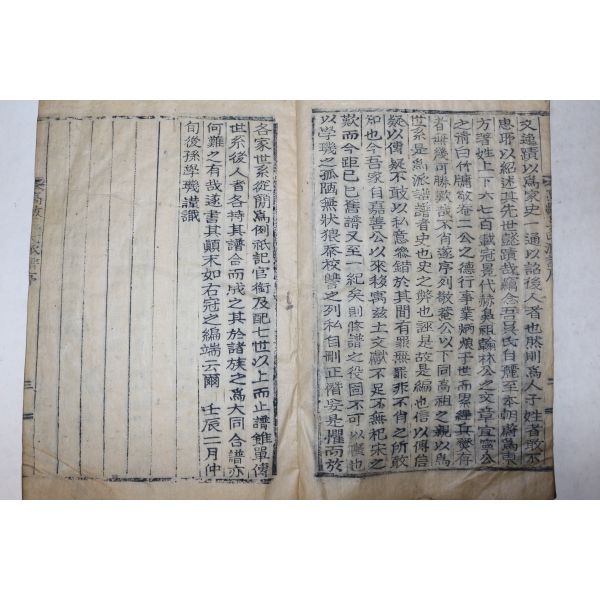 文遺蹟以爲家史一通以詒後人者也然則爲人子姓者敢不
思耶以紹述其先世懿蹟哉竊念吾吳氏自麗至本朝蔚爲東
方著姓上下六七百載冠冕代赫鼻祖翰林公之文章宜寧公
之淸白竹牖敬庵二公之德行事業炳烺于世而累經燹存
者毋幾可勝歎哉不肖遂序列敬庵公以下同高祖之親以爲
世系是爲派譜譜者史也史之弊也誣是故是編也信以傳信
疑以傳疑不敢以私意參錯於其間有罪無罪非不肖之所敢
知也今吾家自嘉善公以來移寓玆土文獻不足不無杞宋之
歎而今距己巳舊譜又至一紀矣則修譜之役固不可以已也
以學璣之孤陋無狀猥忝校讐之列私自刪正僭妄是懼而於
各家世系從簡爲例祇記官銜及配七世以上而止譜雖單傳
世系後人者各持其譜合而成之其於諸族之爲大同合譜亦
何難之有哉遂書其顚末如右冠之編端云爾 壬辰二月仲
旬後孫學璣謹識